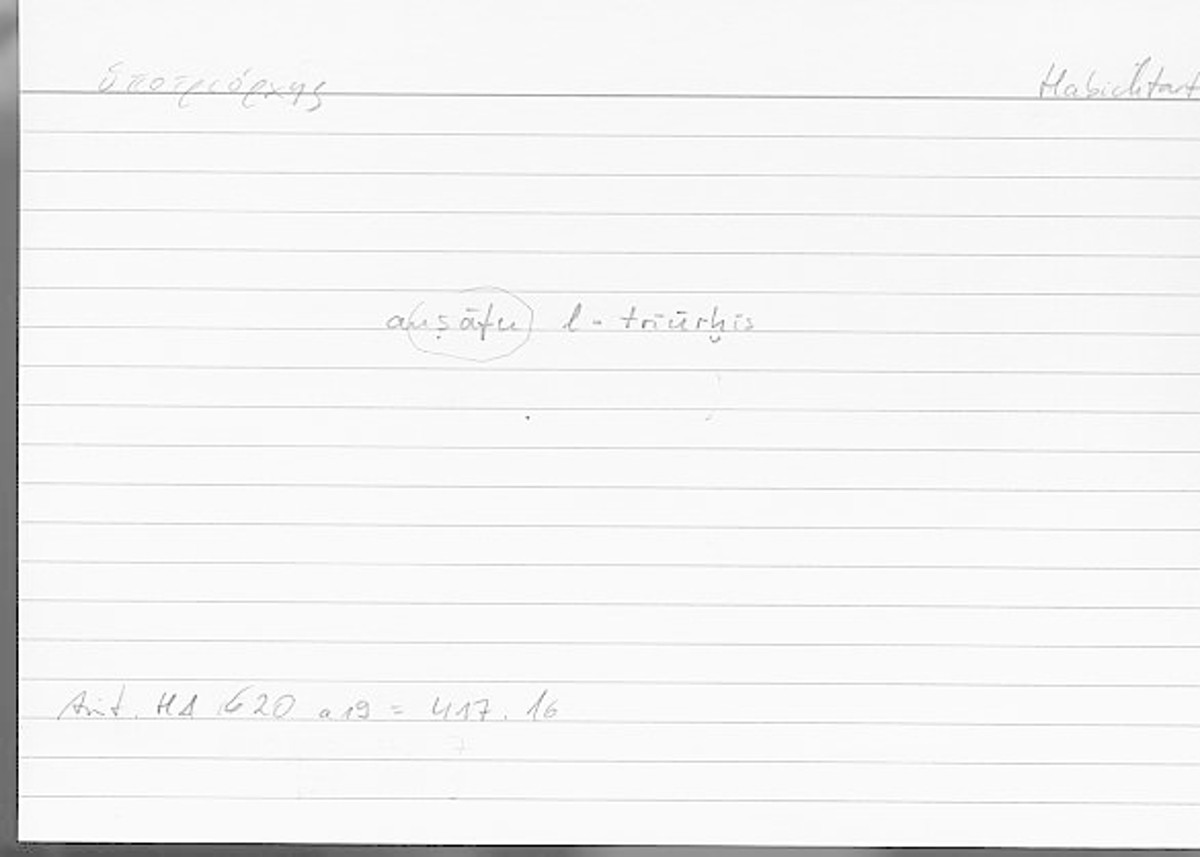 ὑποτριόρχης Habichtart
anṣāfu l-triūrḫis
Arist. HA 620 a19 = 417.16